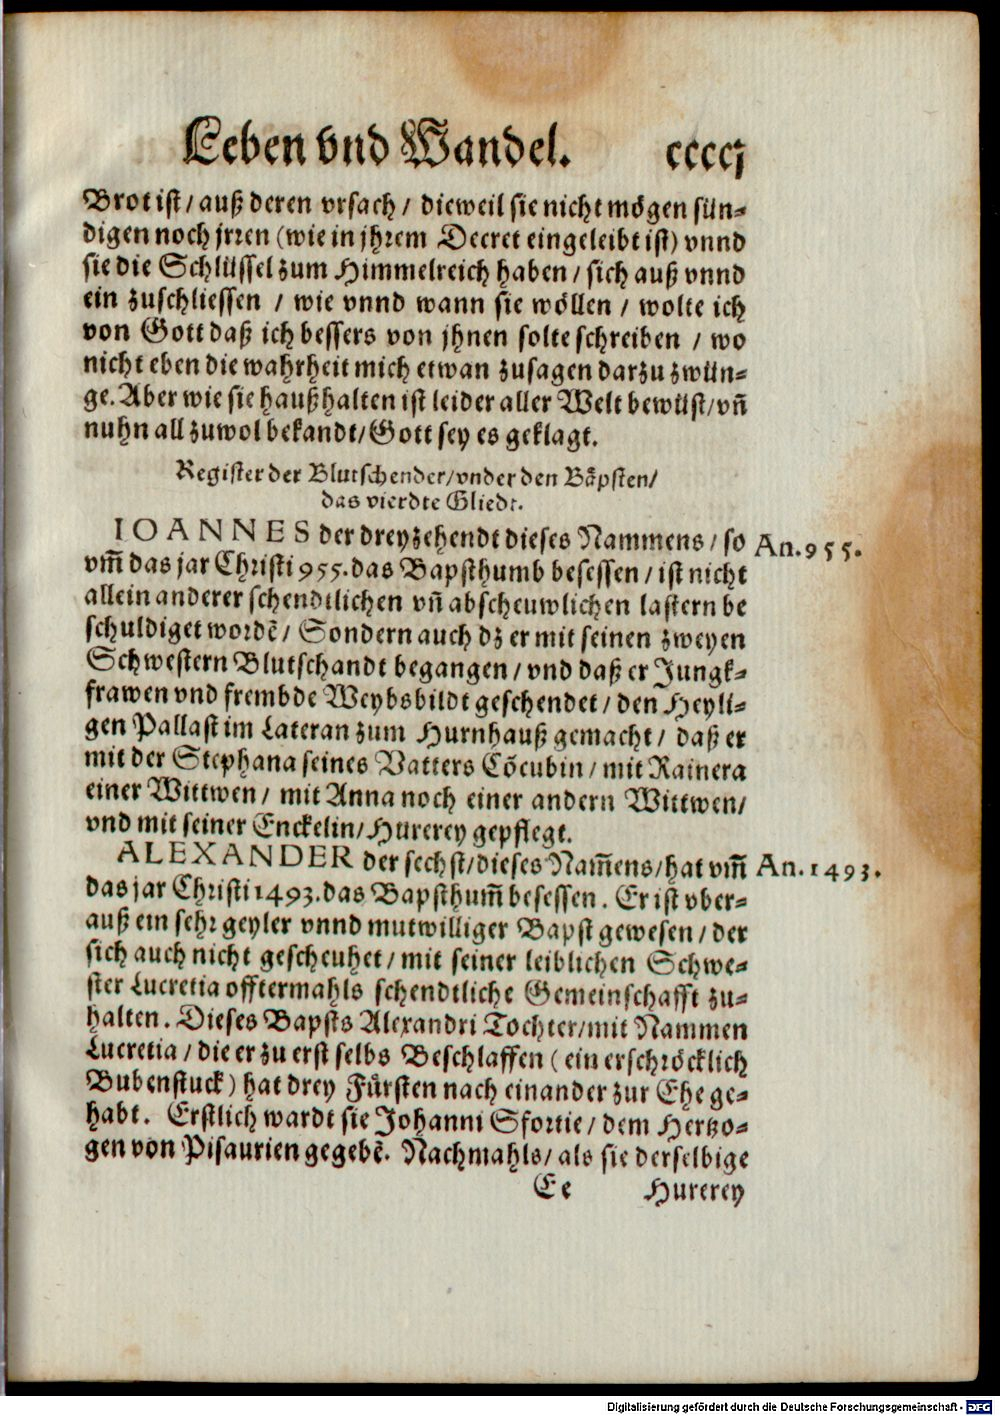 Leben vnd Wandel. ccccj
Brot ist/ auß deren vrsach/ dieweil sie nicht mögen sün-
digen noch jrren (wie in jhrem Decret eingeleibt ist) vnnd
sie die Schlüssel zum Himmelreich haben/ sich auß vnnd
ein zuschliessen / wie vnnd wann sie wöllen / wolte ich
von Gott daß ich bessers von jhnen solte schreiben / wo
nicht eben die wahrheit mich etwan zusagen darzu zwün-
ge. Aber wie sie haußhalten ist leider aller Welt bewüst/ vñ
nuhn all zuwol bekandt/ Gott sey es geklagt.
Register der Blutschender/ vnder den Bäpsten/
das vierdte Gliedt.
IOANNES der dreyzehendt dieses Nammens/ so An. 955.
vm̃ das jar Christi 955. das Bapsthumb besessen/ ist nicht
allein anderer schendtlichen vñ abscheuwlichen lastern be
schuldiget wordē/ Sondern auch dz er mit seinen zweyen
Schwestern Blutschandt begangen/ vnd daß er Jungk-
frawen vnd frembde Weybsbildt geschendet/ den Heyli-
gen Pallast im Lateran zum Hurnhauß gemacht/ daß er
mit der Stephana seines Vatters Cōcubin/ mit Rainera
einer Wittwen/ mit Anna noch einer andern Wittwen/
vnd mit seiner Enckelin/ Hurerey gepflegt.
ALEXANDER der sechst/ dieses Nam̃ens/ hat vm̃ An. 1493.
das jar Christi 1493. das Bapsthum̃ besessen. Er ist vber-
auß ein sehr geyler vnnd mutwilliger Bapst gewesen/ der
sich auch nicht gescheuhet/ mit seiner leiblichen Schwe-
ster Lucretia offtermahls schendtliche Gemeinschafft zu-
halten. Dieses Bapsts Alexandri Tochter/ mit Nammen
Lucretia/ die er zu erst selbs Beschlaffen (ein erschröcklich
Bubenstuck) hat drey Fürsten nach einander zur Ehe ge-
habt. Erstlich wardt sie Johanni Sfortie/ dem Hertzo-
gen von Pisaurien gegebē. Nachmahls/ als sie derselbige
Ee Hurerey
Digitalisierung gefördert durch die Deutsche Forschungsgemeinschaft - DFG